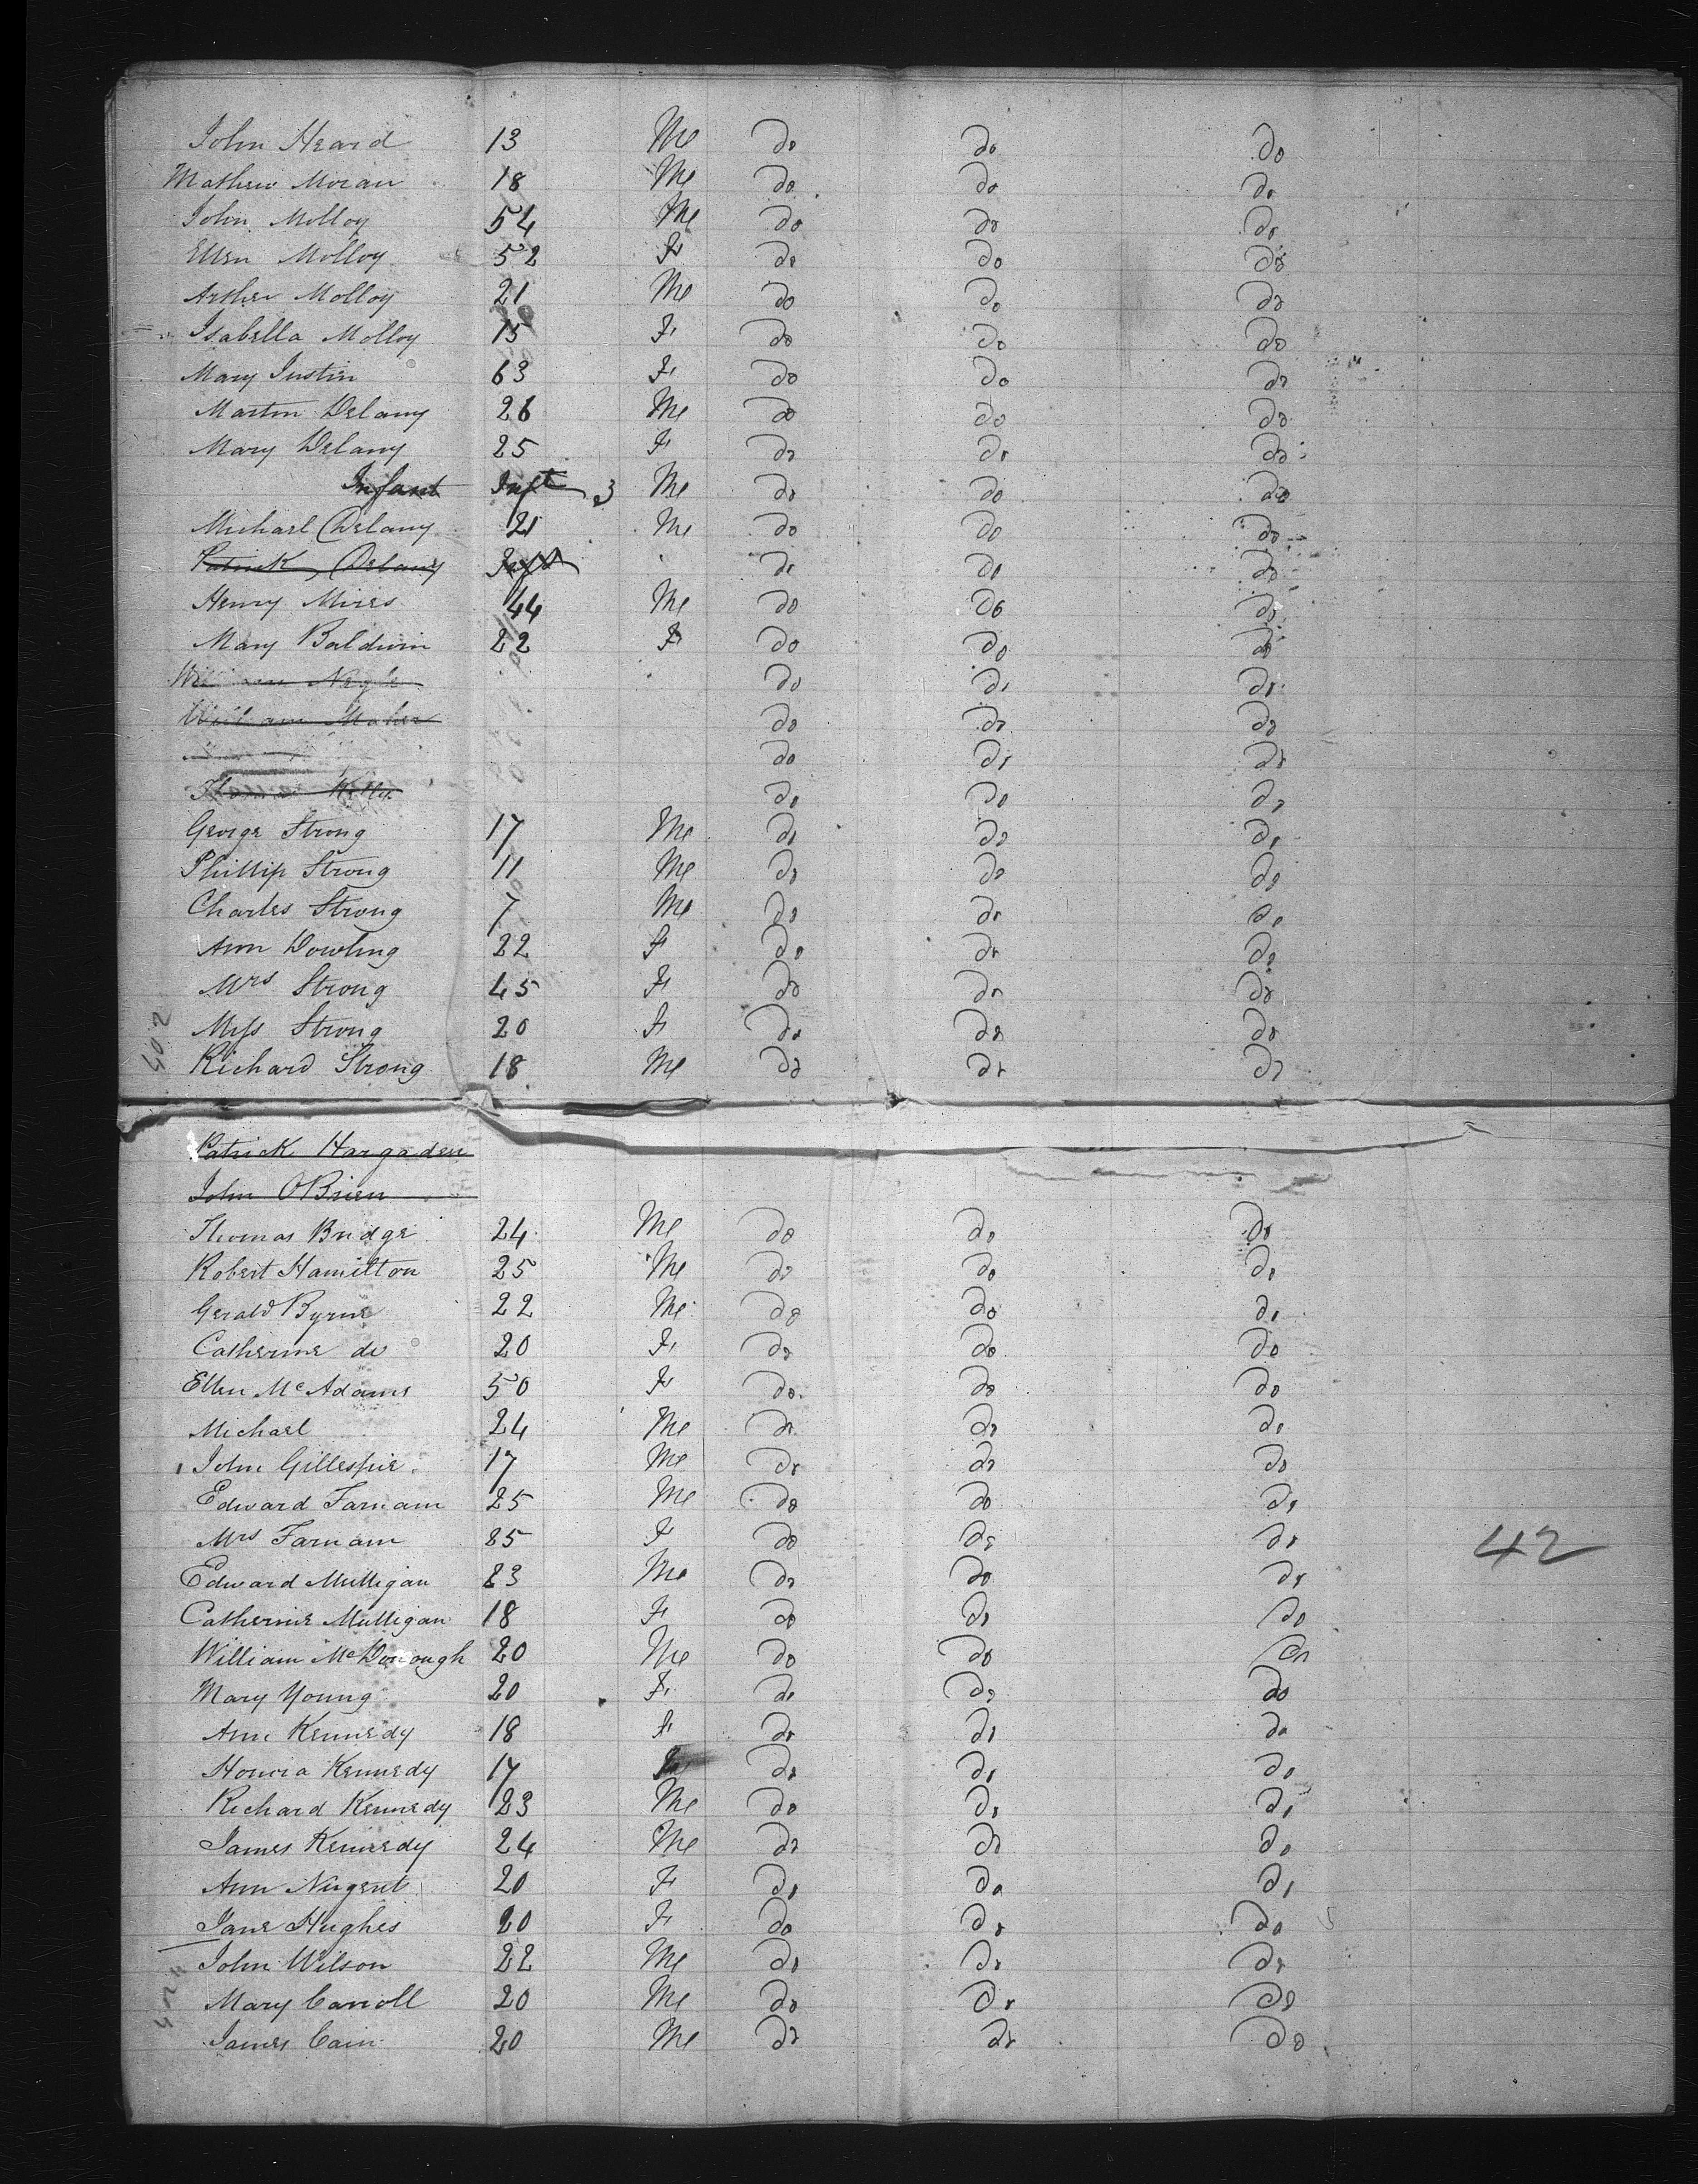 John Heard 13 Me do do do
Mathew Moran 18 Me do do do
John Molloy 54 Me do do do
Ellen Molloy 52 F do do do
Arther Molloy 21 Me do do do
Isabella Molloy 15 F do do do
Mary Justin 63 F do do do
Martin Delany 26 Me do do do
Mary Delany 25 F do do do
Infant Inft 3 Me do do do
Michael Delany 21 Me do do do
Patrick Delany Inft do do do
Henry Mires 44 Me do do do
Mary Baldwin 22 F do do do
William Nagle do do do
William Maher do do do
do do do
Thomas Kelly do do do
George Strong 17 Me do do do
Phillip Strong 11 Me do do do
Charles Strong 7 Me do do do
Ann Dowling 22 F do do do
Mrs Strong 45 F do do do
Miss Strong 20 F do do do
Richard Strong 18 Me do do do
Patrick Hargaden
John OBrien
Thomas Bridge 24 Me do do do
Robert Hamilton 25 Me do do do
Gerald Byrne 22 Me do do do
Catherine do 20 F do do do
Ellen McAdams 50 F do do do
Michael 24 Me do do do
John Gillespie 17 Me do do do
Edward Farnam 25 Me do do do
Mrs Farnam 85 F do do do
42
Edward Mulligan 23 Me do do do
Catherine Mulligan 18 F do do do
William McDonough 20 Me do do do
Mary Young 20 F do do do
Ann Kennedy 18 F do do do
Honora Kennedy 17 F do do do
Richard Kennedy 23 Me do do do
James Kennedy 24 Me do do do
Ann Nugent 20 F do do do
Jane Hughes 20 F do do do
John Wilson 22 Me do do do
Mary Carroll 20 Me do do do
James Cain 20 Me do do do